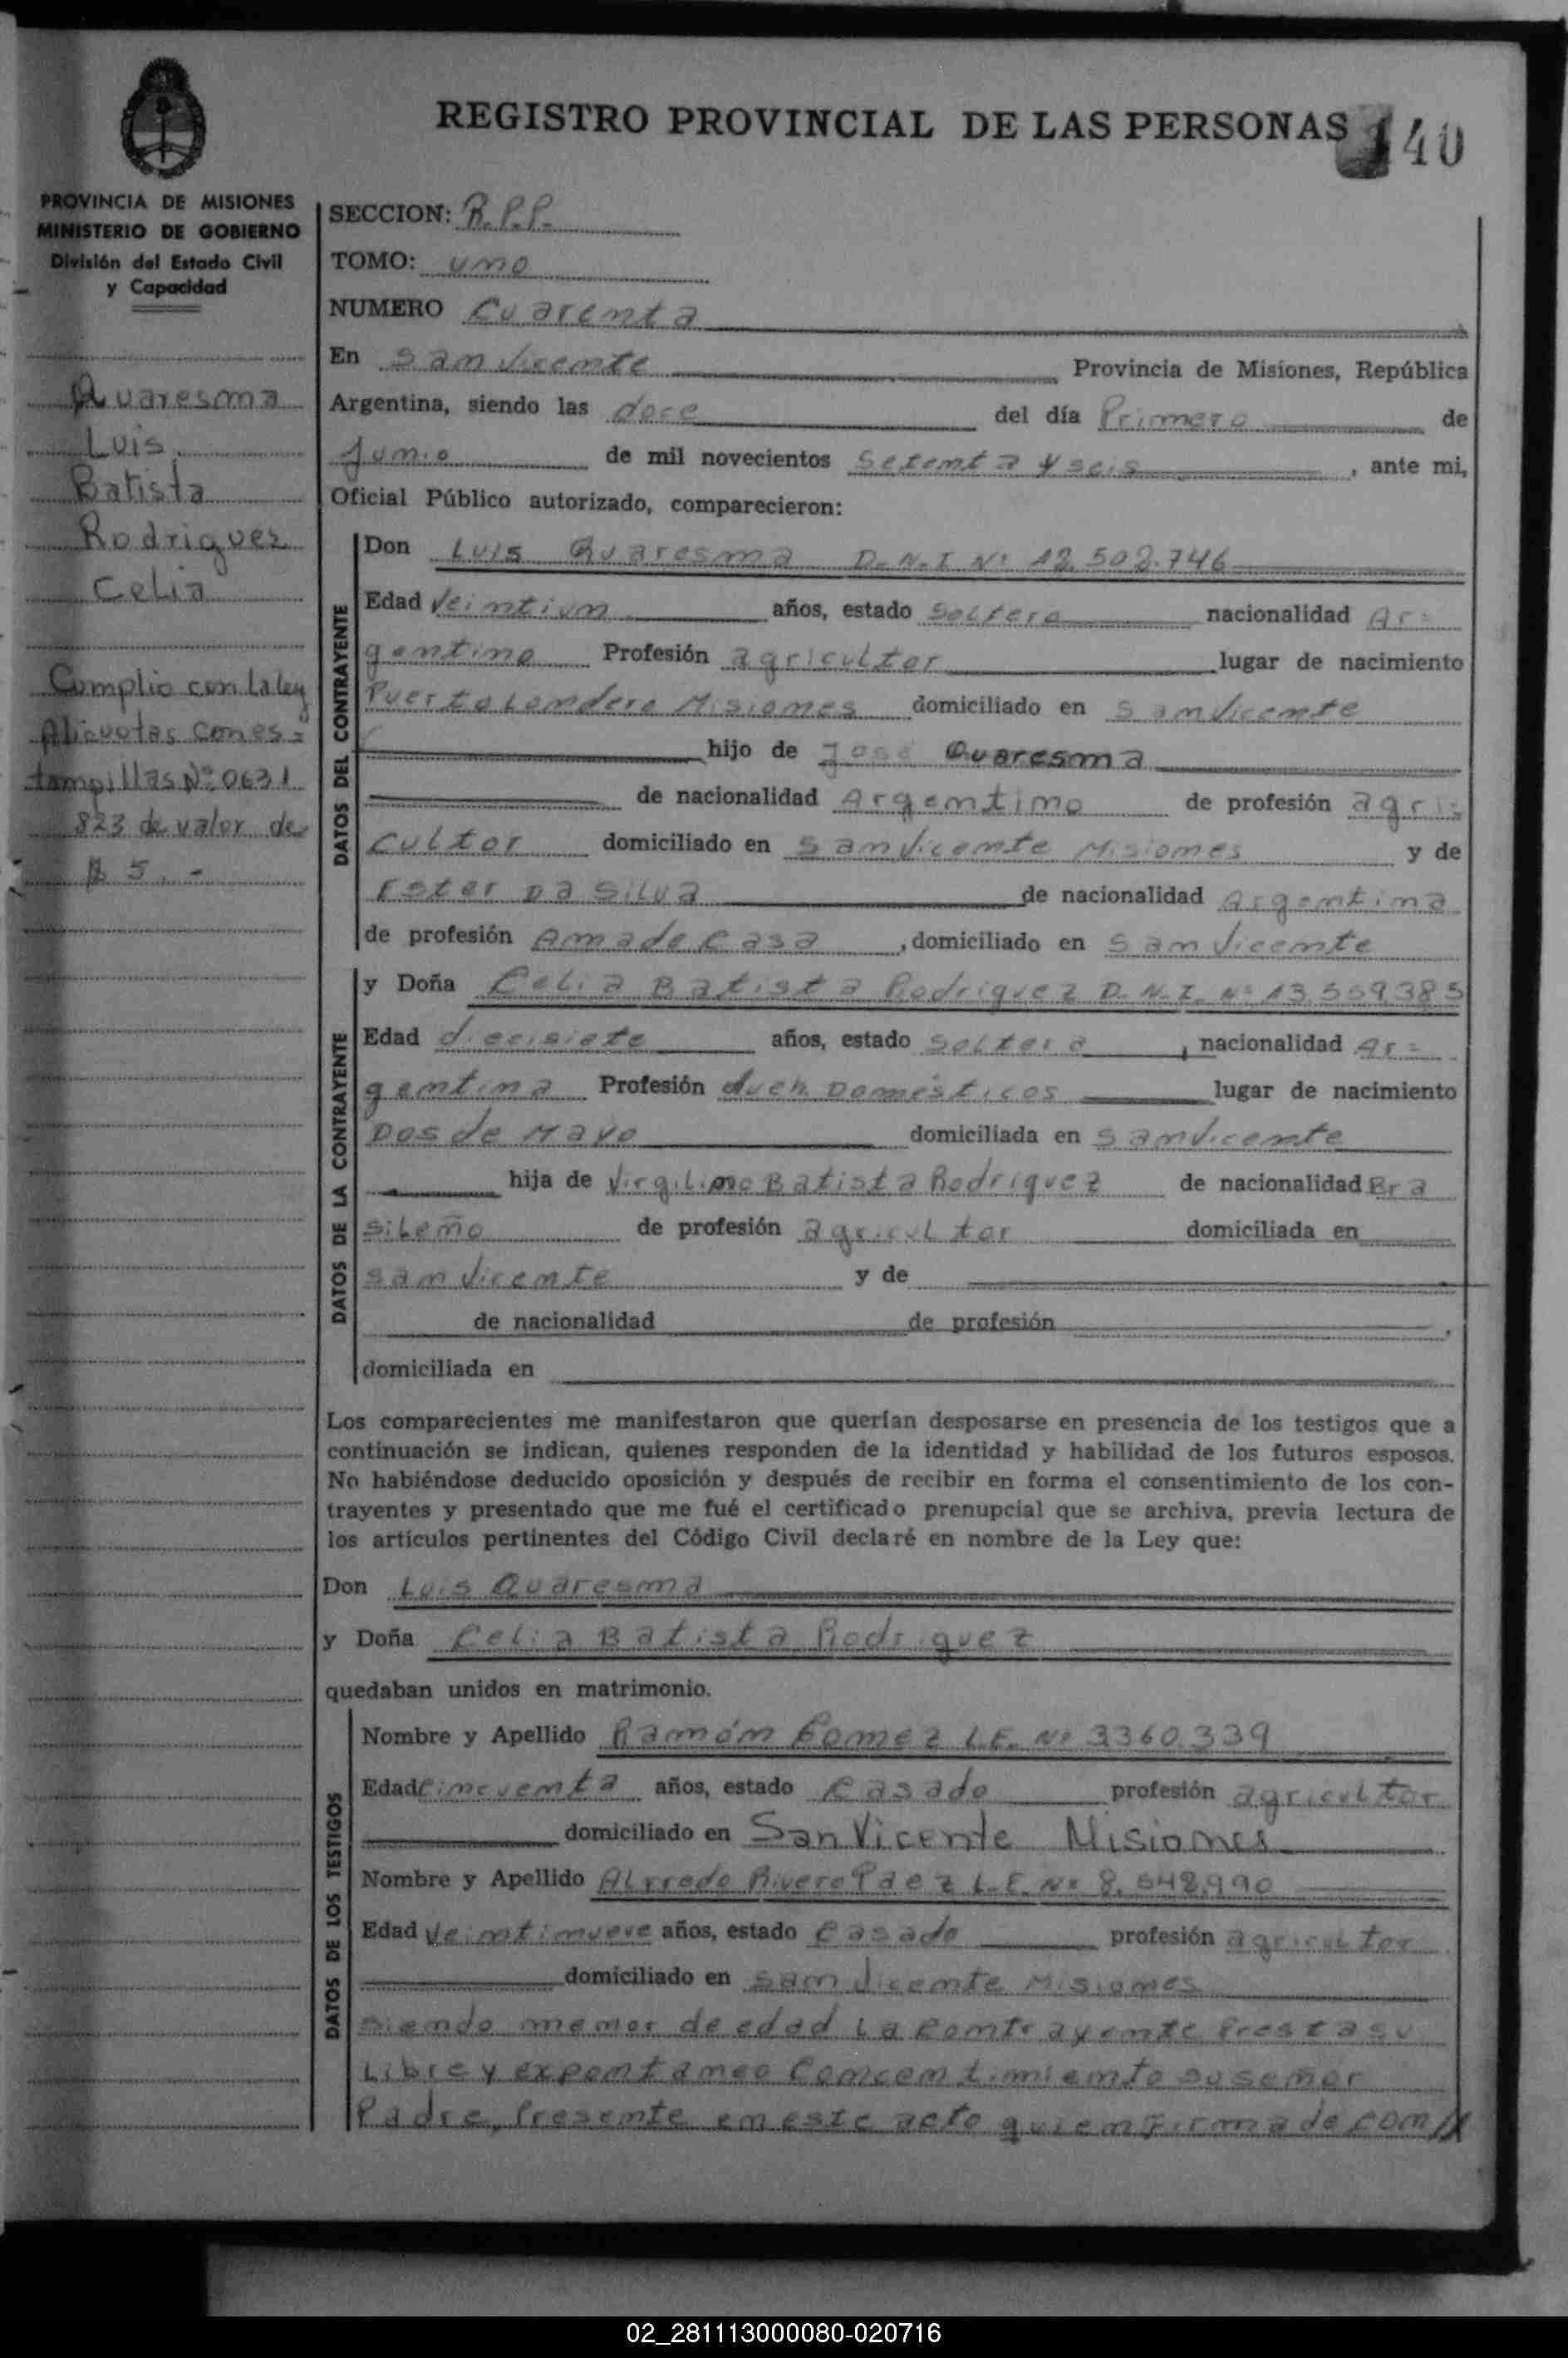 REGISTRO PROVINCIAL DE LAS PERSONAS 140
PROVINCIA DE MISIONES
MINISTERIO DE GOBIERNO
División del Estado Civil
y Capacidad
Quaresma
Luis
Batista
Rodriguez
Celia
Cumplio con la ley
Alicuotas con es=
tampillas Nº 0631
823 de valor de
$ 5.-
SECCION: R.P.P.
TOMO: uno
NUMERO Cuarenta
En San Vicente Provincia de Misiones, República
Argentina, siendo las doce del día Primero de
Junio de mil novecientos Setenta y seis, ante mi,
Oficial Público autorizado, comparecieron:
DATOS DEL CONTRAYENTE
Don Luis Quaresma D.N.I Nº 12.502.746
Edad Veintiun años, estado Soltero nacionalidad Ar=
gentino Profesión agricultor lugar de nacimiento
Puerto Londero Misiones domiciliado en San Vicente
hijo de José Quaresma
de nacionalidad Argentino de profesión agri=
cultor domiciliado en San Vicente Misiones y de
Ester Da Silva de nacionalidad Argentina
de profesión Ama de Casa, domiciliado en San Vicente
DATOS DE LA CONTRAYENTE
y Doña Celia Batista Rodriguez D.N.I. Nº 13.559.385
Edad diecisiete años, estado Soltera, nacionalidad Ar=
gentina Profesión Queh. Domésticos lugar de nacimiento
Dos de Mayo domiciliada en San Vicente
hija de Virgilino Batista Rodriguez de nacionalidad Bra
sileño de profesión agricultor domiciliada en
San Vicente y de
de nacionalidad de profesión
domiciliada en
Los comparecientes me manifestaron que querían desposarse en presencia de los testigos que a
continuación se indican, quienes responden de la identidad y habilidad de los futuros esposos.
No habiéndose deducido oposición y después de recibir en forma el consentimiento de los con-
trayentes y presentado que me fué el certificado prenupcial que se archiva, previa lectura de
los artículos pertinentes del Código Civil declaré en nombre de la Ley que:
Don Luis Quaresma
y Doña Celia Batista Rodriguez
quedaban unidos en matrimonio.
DATOS DE LOS TESTIGOS
Nombre y Apellido Ramón Gomez L.E. Nº 3360.339
Edad Cincuenta años, estado Casado profesión agricultor
domiciliado en San Vicente Misiones
Nombre y Apellido Alfredo Rivero Paez L.E. Nº 8.548.990
Edad Veintinueve años, estado Casado profesión agricultor
domiciliado en San Vicente Misiones
Siendo menor de edad la Contrayente Presta su
Libre y expontaneo Concentimiento su señor
Padre, Presente en este acto quien firma de com//
02_281113000080-020716